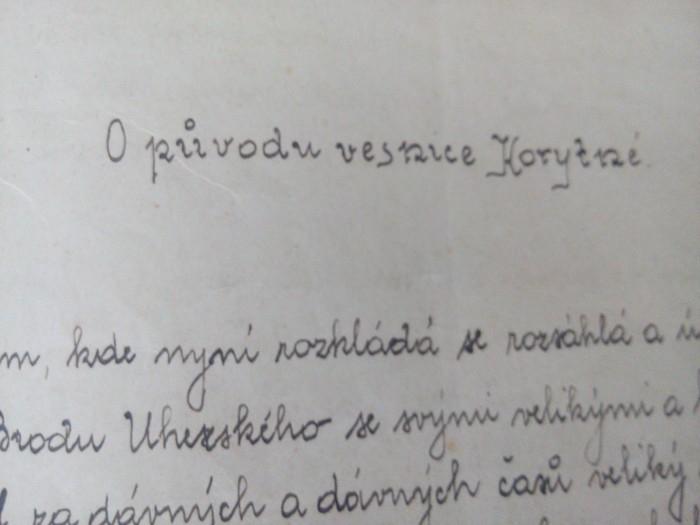 O původu vesnice Korytné.
kde nyní rozkládá se rozsáhlá a
Brodu Uherského se svými velikými a
za dávných a dávných časů veliký